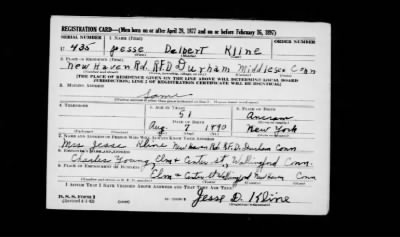 REGISTRATION CARD—(Men born on or after April 28, 1877 and on or before February 16, 1897)
SERIAL NUMBER 1. NAME (Print) ORDER NUMBER
U 435 Jesse Delbert Kline
2. PLACE OF RESIDENCE (Print)
New Haven Rd. R.F.D. Durham Middlesex Conn
[THE PLACE OF RESIDENCE GIVEN ON THE LINE ABOVE WILL DETERMINE LOCAL BOARD
JURISDICTION; LINE 2 OF REGISTRATION CERTIFICATE WILL BE IDENTICAL]
3. MAILING ADDRESS
Same
4. TELEPHONE 5. AGE IN YEARS 6. PLACE OF BIRTH
51 Ancram
DATE OF BIRTH
Aug. 7 1890 New York
7. NAME AND ADDRESS OF PERSON WHO WILL ALWAYS KNOW YOUR ADDRESS
Mrs Jesse Kline New Haven Rd. R.F.D. Durham Conn
8. EMPLOYER'S NAME AND ADDRESS
Charles Young, Elm & Center St, Wallingford Conn.
9. PLACE OF EMPLOYMENT OR BUSINESS
Elm & Center St Wallingford New Haven Conn
I AFFIRM THAT I HAVE VERIFIED ABOVE ANSWERS AND THAT THEY ARE TRUE.
D. S. S. Form 1
Jesse D. Kline